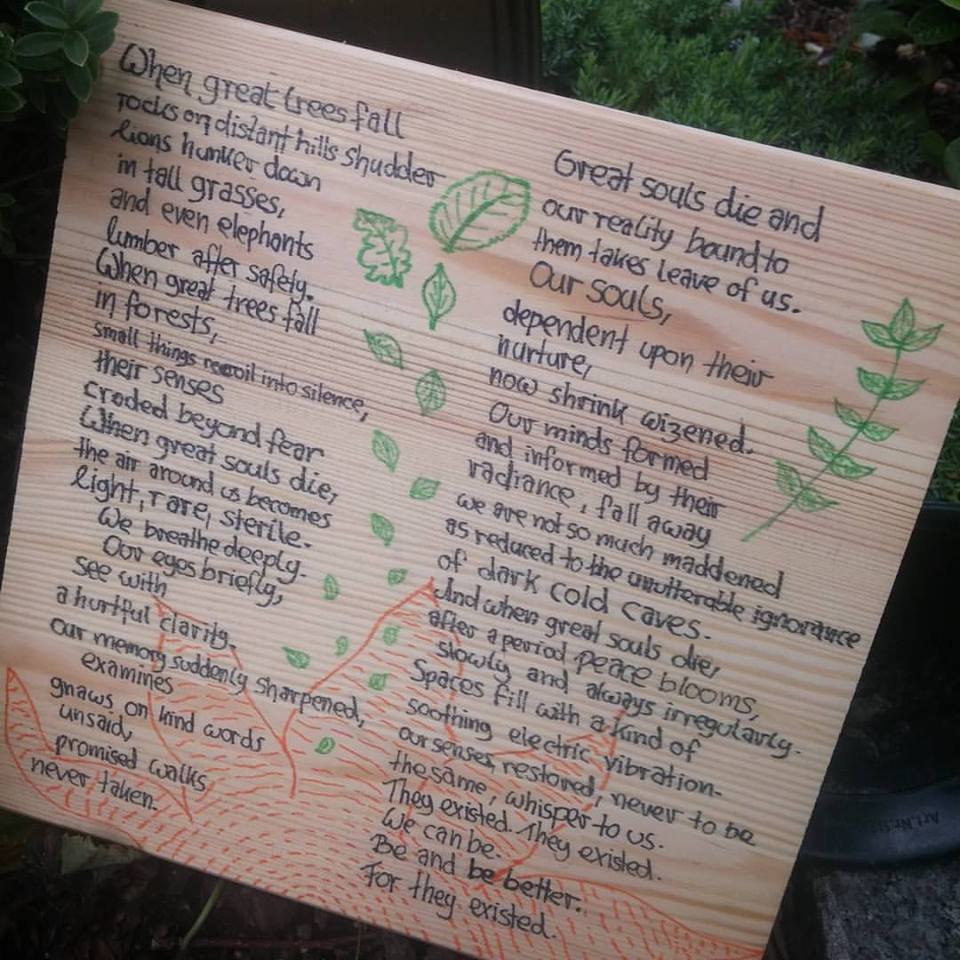 When great trees fall
rocks on distant hills shudder
lions hunker down
in tall grasses,
and even elephants
lumber after safety.
When great trees fall
in forests,
small things recoil into silence,
their senses
eroded beyond fear
When great souls die,
the air around us becomes
light, rare, sterile.
We breathe deeply.
Our eyes briefly,
see with
a hurtful clarity.
our memory suddenly sharpened,
examines
gnaws on kind words
unsaid,
promised walks
never taken.
Great souls die and
our reality bound to
them takes leave of us.
Our souls,
dependent upon their
nurture,
now shrink wizened.
Our minds formed
and informed by their
radiance, fall away
we are not so much maddened
as reduced to the unutterable ignorance
of dark cold caves.
And when great souls die,
after a period peace blooms,
slowly and always irregularly.
Spaces fill with a kind of
soothing electric vibration.
our senses, restored, never to be
the same, whisper to us.
They existed. They existed.
We can be.
Be and be better.
For they existed.